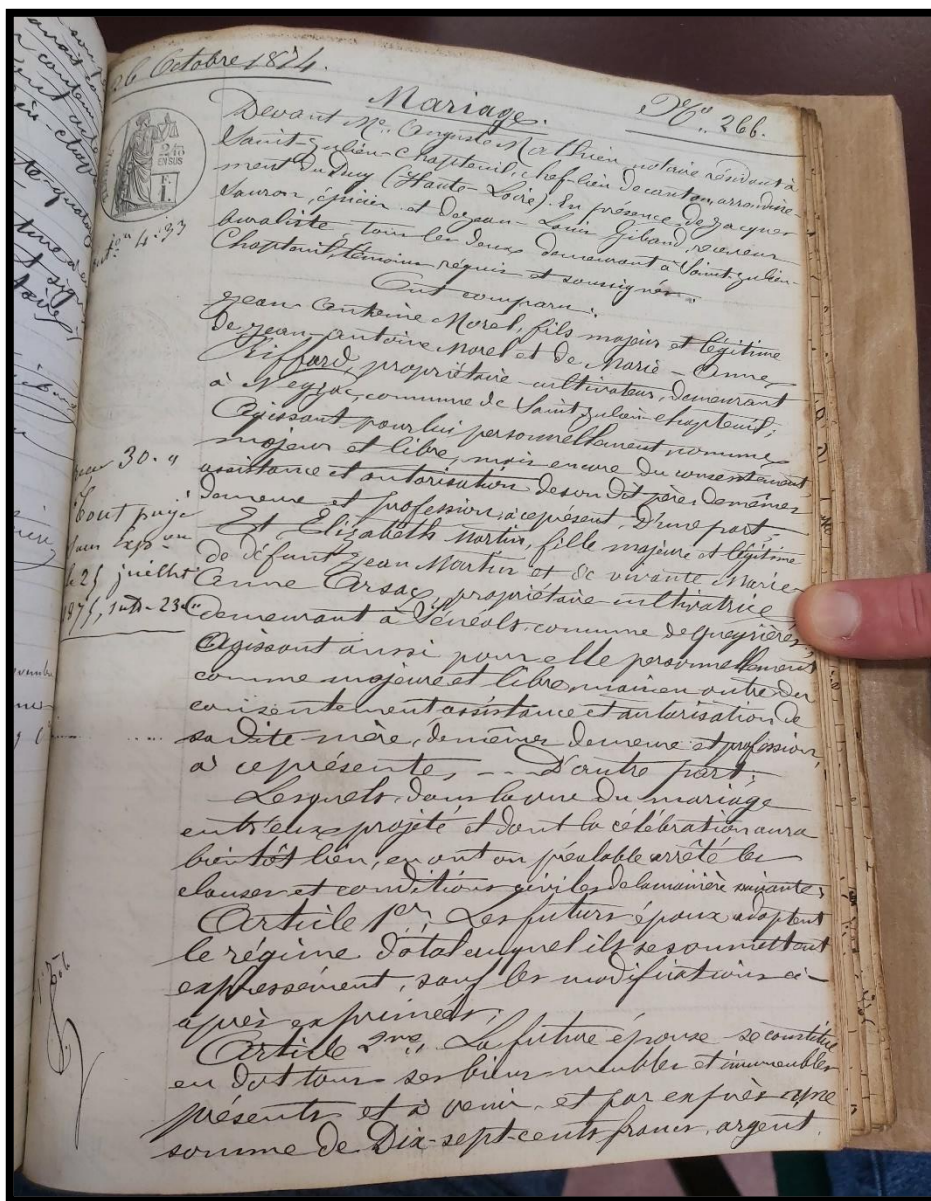 26 Octobre 1874.
Mariage.
No. 266.
Devant Me. Auguste Mathieu notaire résidant à
Saint-Julien-Chapteuil, chef-lieu de canton, arrondisse-
ment du Puy (Haute-Loire). En présence de Jacques
Sauron, épicier et de Jean-Louis Gibaud, receveur
buraliste, tous les deux demeurant à Saint-Julien-
Chapteuil, témoins requis et soussignés.
Ont comparu:
Jean Antoine Morel, fils majeur et légitime
de Jean-Antoine Morel et de Marie-Anne
Riffard, propriétaire-cultivateur, demeurant
à Neyzac, commune de Saint-Julien-Chapteuil;
Agissant pour lui personnellement comme
majeur et libre, mais encore du consentement
assistance et autorisation de son dit père, de mêmes
demeure et profession, à ce présent, D'une part
Et Elizabeth Martin, fille majeure et légitime
de défunt Jean Martin et de vivante Marie-
Anne Arsac, propriétaire-cultivatrice
demeurant à commune de Queyrières;
Agissant aussi pour elle personnellement
comme majeure et libre mais en outre du
consentement assistance et autorisation de
sa dite mère, de mêmes demeure et profession,
à ce présente, -- D'autre part;
Lesquels, dans la vue du mariage
entr'eux projeté et dont la célébration aura
bientôt lieu, en ont au préalable arrêté les
clauses et conditions civiles de la manière suivante;
Article 1er. Les futurs époux adoptent
le régime dotal auquel ils se soumettent
expressément, sauf les modifications ci-
après exprimées;
Article 2me. La future épouse se constitue
en dot tous ses biens meubles et immeubles
présents et à venir, et par exprès une
somme de Dix-sept-cents francs, argent.
2/10
EN SUS
F.
1.
4.33
30. "
Tout payé
sans
le 25 juillet
1875,